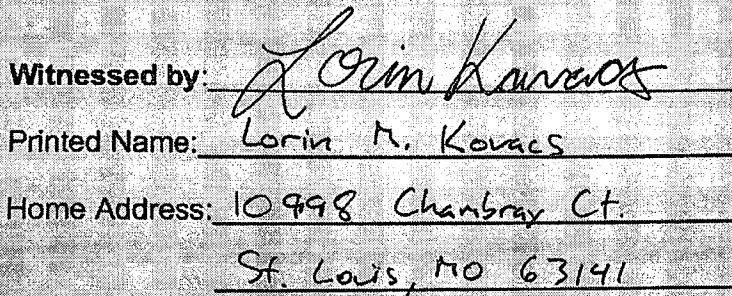 Witnessed by: Lorin Kovacs
Printed Name: Lorin M. Kovacs
Home Address: 10998 Chambray Ct.
St. Louis, MO 63141